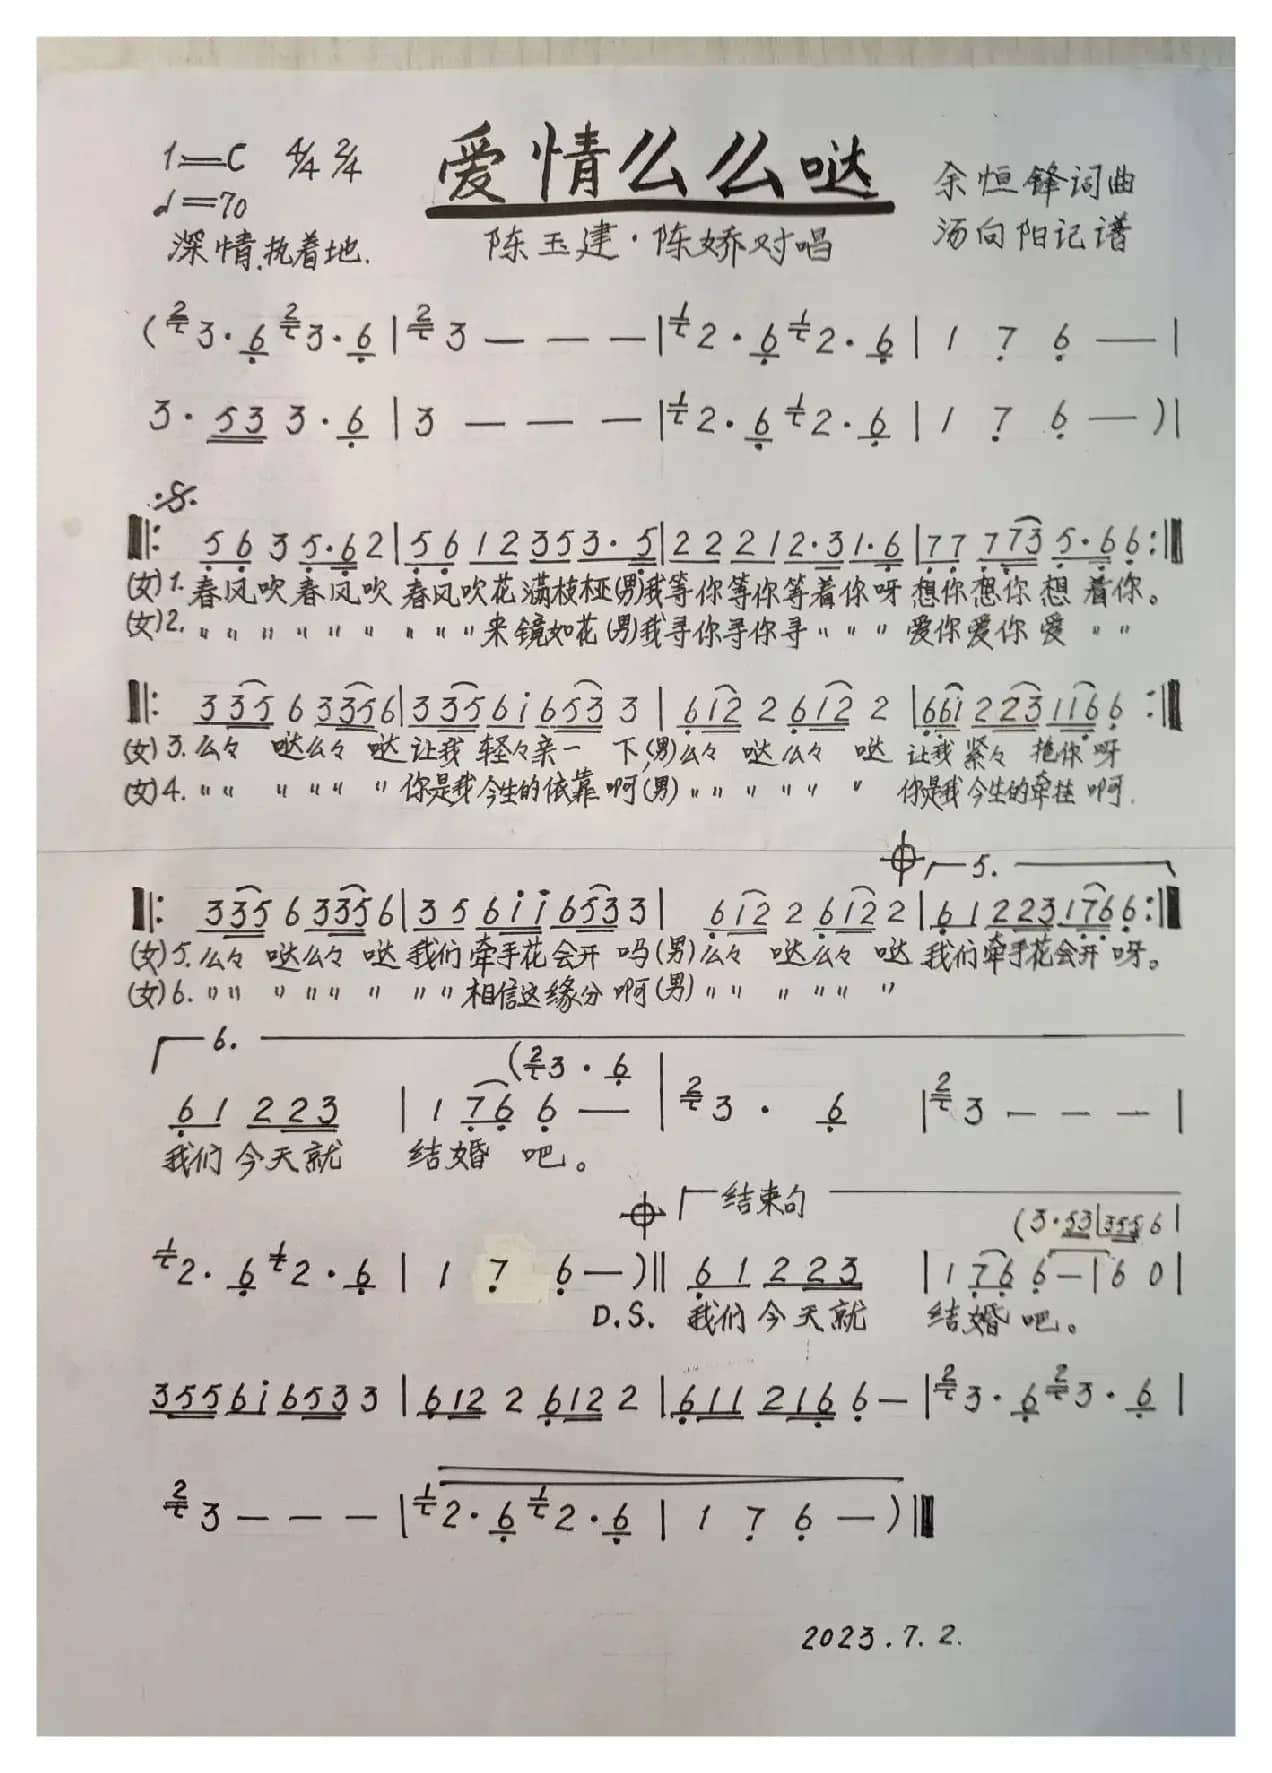 1=C 4/4 2/4 爱情么么哒 余恒锋词曲
♩=70 陈玉建·陈娇对唱 汤向阳记谱
深情、执着地.
( 2 3 · 6 2 3 · 6 | 2 3 — — — | 1 2 · 6 1 2 · 6 | 1 7 6 — |
3 · 5 3 3 · 6 | 3 — — — | 1 2 · 6 1 2 · 6 | 1 7 6 — ) |
𝄋
‖: 5 6 3 5 · 6 2 | 5 6 1 2 3 5 3 · 5 | 2 2 2 1 2 · 3 1 · 6 | 7 7 7 7 3 5 · 6 6 :‖
(女)1. 春风吹 春风吹 春风吹花满枝桠(男)我等你等你等着你呀 想你想你想着你。
(女)2. 〃 〃 〃 〃 〃 〃 〃 〃 〃 来镜如花(男)我寻你寻你寻 〃 〃 〃 爱你爱你爱 〃 〃
‖: 3 3 5 6 3 3 5 6 | 3 3 5 6 i 6 5 3 3 | 6 1 2 2 6 1 2 2 | 6 6 1 2 2 3 1 1 6 6 :‖
(女)3. 么々 哒么々 哒 让我 轻々亲一 下(男)么々 哒么々 哒 让我 紧々 抱你 呀
(女)4. 〃 〃 〃 〃 〃 〃 你是我今生的依靠 啊(男) 〃 〃 〃 〃 〃 〃 你是我今生的牵挂 啊.
𝄌 5.
‖: 3 3 5 6 3 3 5 6 | 3 5 6 i i 6 5 3 3 | 6 1 2 2 6 1 2 2 | 6 1 2 2 3 1 7 6 6 :‖
(女)5. 么々 哒么々 哒 我们牵手花会开 吗(男)么々 哒么々 哒 我们牵手花会开 呀。
(女)6. 〃 〃 〃 〃 〃 〃 〃 〃 相信这缘分 啊(男) 〃 〃 〃 〃 〃 〃
6.
( 2 3 · 6
6 1 2 2 3 | 1 7 6 6 — | 2 3 · 6 | 2 3 — — — |
我们今天就 结婚 吧。
𝄌 结束句
(3 · 5 3 | 3 5 5 6 |
1 2 · 6 1 2 · 6 | 1 7 6 — ) ‖ 6 1 2 2 3 | 1 7 6 6 — | 6 0 |
D.S. 我们今天就 结婚吧。
3 5 5 6 i 6 5 3 3 | 6 1 2 2 6 1 2 2 | 6 1 1 2 1 6 6 — | 2 3 · 6 2 3 · 6 |
2 3 — — — | 1 2 · 6 1 2 · 6 | 1 7 6 — ) ‖
2023.7.2.